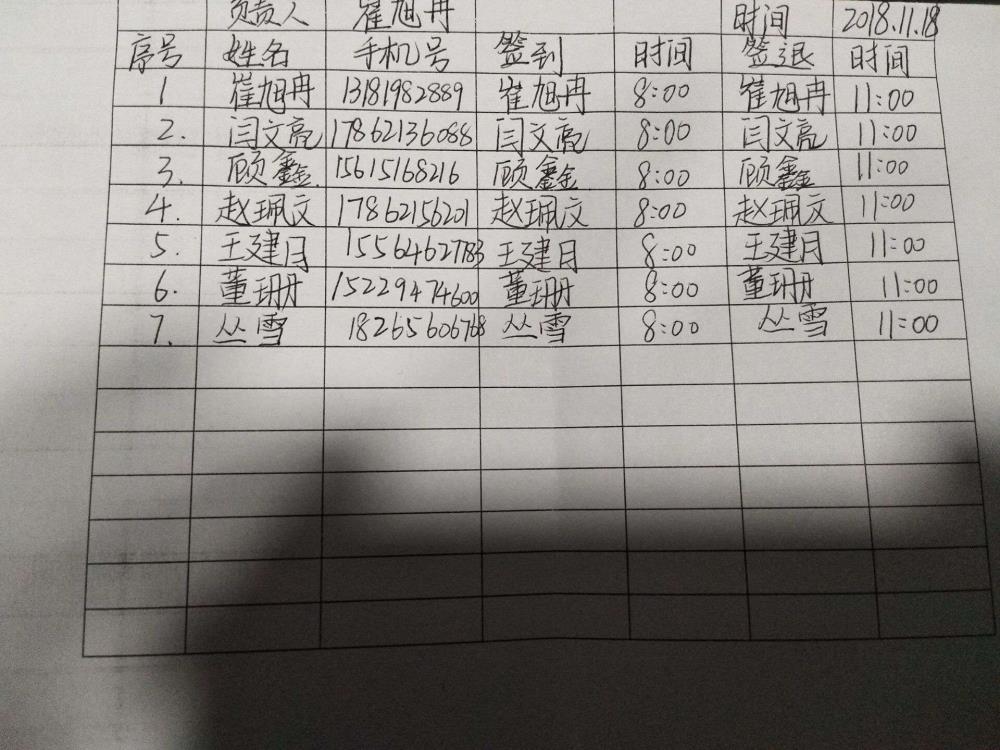 负责人 崔旭冉 时间 2018.11.18
序号 姓名 手机号 签到 时间 签退 时间
1 崔旭冉 13181982889 崔旭冉 8:00 崔旭冉 11:00
2. 闫文亮 17862136088 闫文亮 8:00 闫文亮 11:00
3. 顾鑫 15615168216 顾鑫 8:00 顾鑫 11:00
4. 赵珮文 17862156201 赵珮文 8:00 赵珮文 11:00
5. 王建月 15564627783 王建月 8:00 王建月 11:00
6. 董珊 15229474600 董珊 8:00 董珊 11:00
7. 丛雪 18265606768 丛雪 8:00 丛雪 11:00